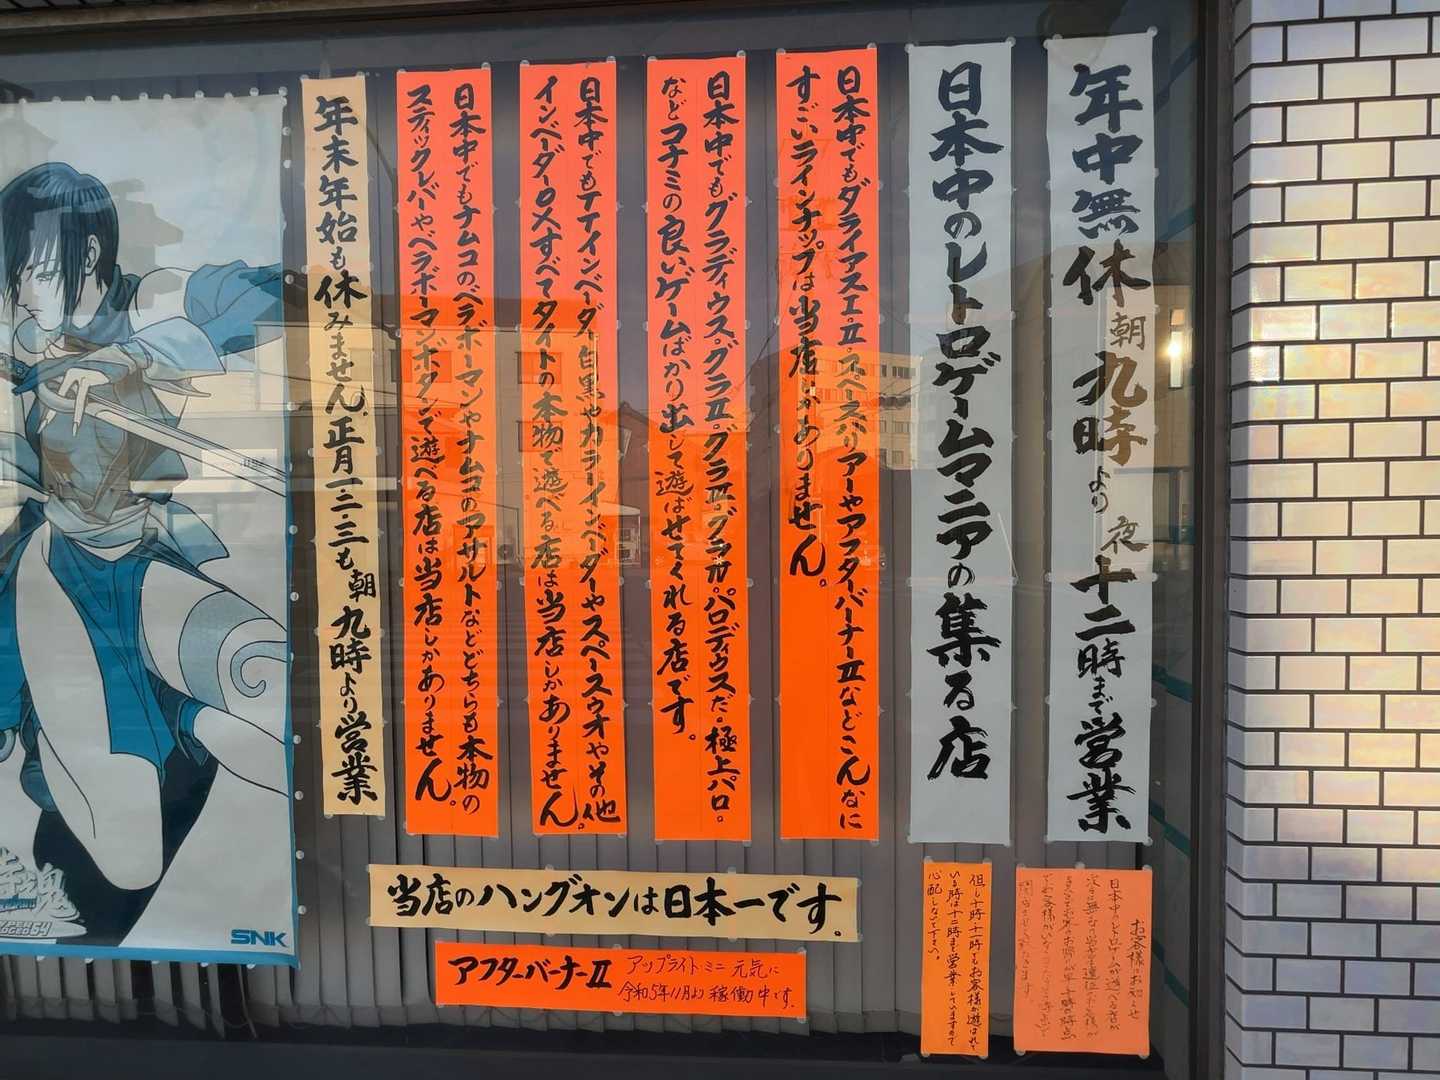 年中無休 朝九時より 夜十二時まで営業
日本中のレトロゲームマニアの集る店
日本中でもダライアスエⅡ・スペースハリアーやアフターバーナーⅡなどこんなに
すごいラインナップは当店しかありません。
日本中でもグラディウス・グラⅡ・グラⅢ・グラガ・パロディウスだ・極上パロ。
などコナミの良いゲームばかり出して遊ばせてくれる店です。
日本中でもTTインベーダ白黒やカラーインベーダーやスペースウオやその他
インベーダーすべてタイトの本物で遊べる店は当店しかありません。
日本中でもナムコのベラボーマンやナムコのアサルトなどどちらも本物の
スティックレバーやベラボーマンボタンで遊べる店は当店しかありません。
年末年始も休みません。正月一・二・三も朝九時より営業
当店のハングオンは日本一です。
アフターバーナーⅡ
アップライト・ミニ 元気に
令和5年11月より稼働中です。
但し十時十一時でもお客様が遊ばれて
いる時は十二時まで営業していますので
心配しないで下さい。
お客様にお知らせ
日本中のレトロゲームが遊べる店が
SNK